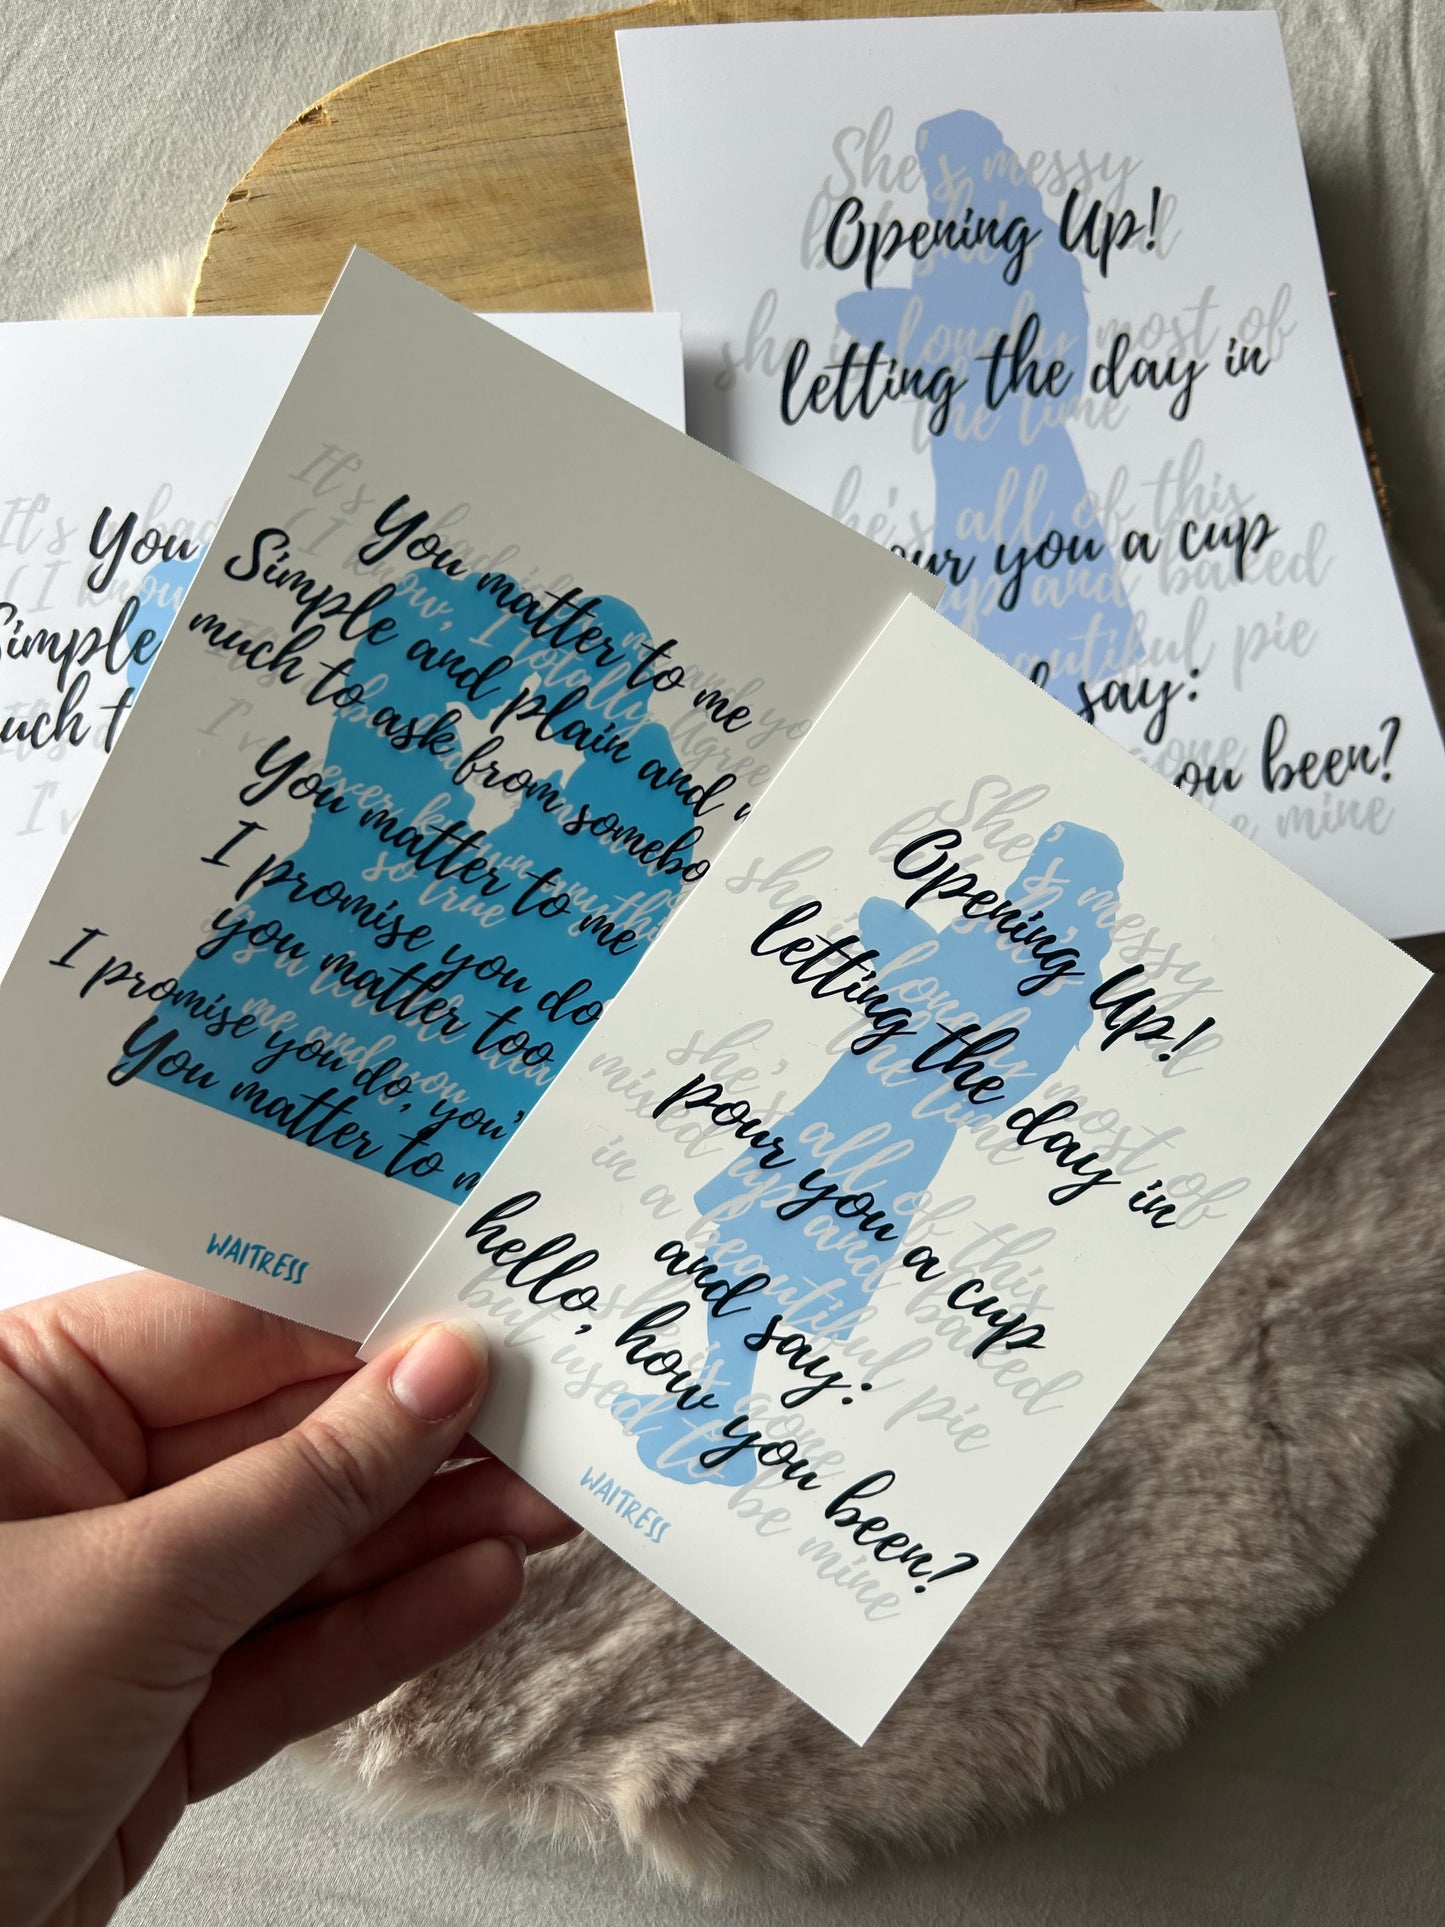 She's messy
Opening Up!
she is lonely most of
letting the day in
the time
he's all of this
our you a cup
up and baked
beautiful pie
say:
gone
ou been?
e mine
It's bad
You
(I know
Simple
uch t
It's
I'v
It's bad idea, me and yo
You matter to me
(I know, I totally agree
Simple and plain and
It's a bad
much to ask from somebo
I've never known anythi
so true
You matter to me
I promise you do
you matter too
me and you
I promise you do, you'
You matter to m
WAITRESS
She's messy
Opening Up!
she is lonely most of
letting the day in
the time
she's all of this
mixed up and baked
pour you a cup
in a beautiful pie
and say:
she's gone
hello, how you been?
but used to be mine
WAITRESS